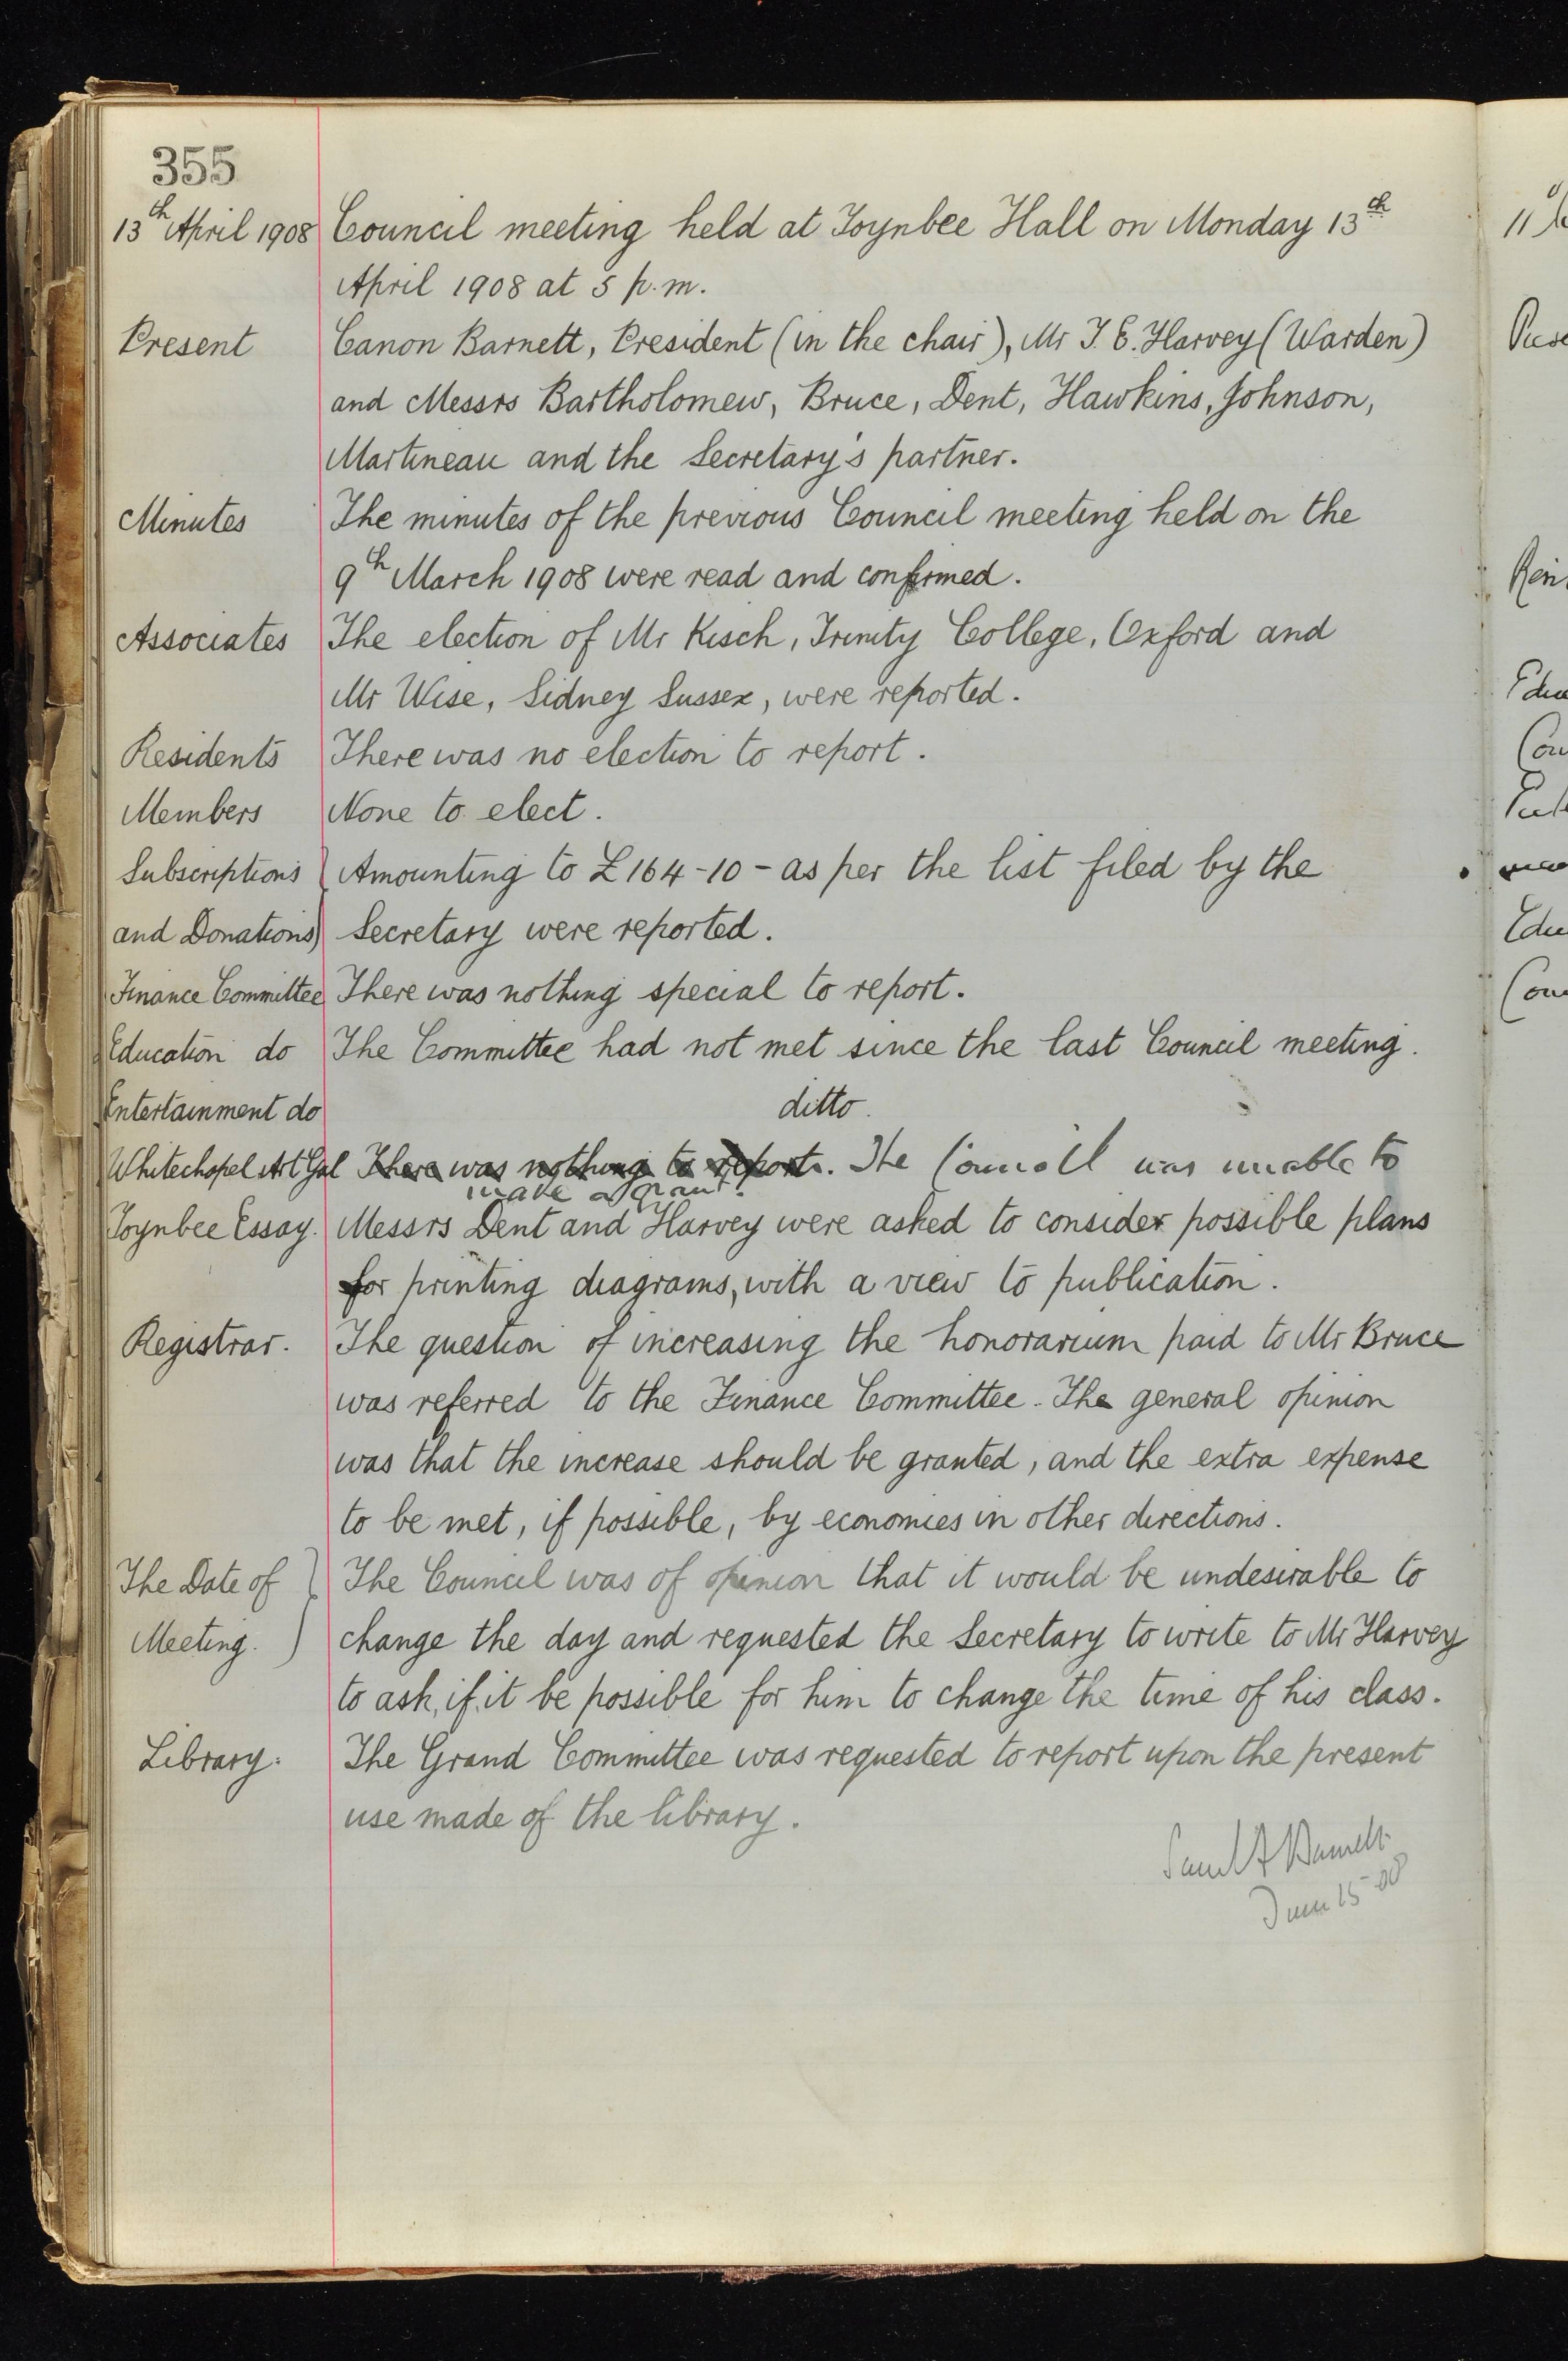 355
13th April 1908 Council meeting held at Toynbee Hall on Monday 13th
April 1908 at 5 p.m.
Present Canon Barnett, President (in the chair), Mr T. E. Harvey (Warden)
and Messrs Bartholomew, Bruce, Dent, Hawkins, Johnson,
Martineau and the Secretary's partner.
Minutes The minutes of the previous Council meeting held on the
9th March 1908 were read and confirmed.
Associates The election of Mr Kisch, Trinity College, Oxford and
Mr Wise, Sidney Sussex, were reported.
Residents There was no election to report.
Members None to elect.
Subscriptions Amounting to £164-10- as per the list filed by the
and Donations) Secretary were reported.
Finance Committee There was nothing special to report.
Education do The Committee had not met since the last Council meeting.
Entertainment do ditto.
Whitechapel Art Gal There was nothing to report. The Council was unable to
make a grant.
Toynbee Essay. Messrs Dent and Harvey were asked to consider possible plans
for printing diagrams, with a view to publication.
Registrar. The question of increasing the honorarium paid to Mr Bruce
was referred to the Finance Committee. The general opinion
was that the increase should be granted, and the extra expense
to be met, if possible, by economies in other directions.
The Date of } The Council was of opinion that it would be undesirable to
Meeting. ) change the day and requested the Secretary to write to Mr Harvey
to ask, if it be possible for him to change the time of his class.
Library. The Grand Committee was requested to report upon the present
use made of the library.
Saml A Barnett.
June 15 08